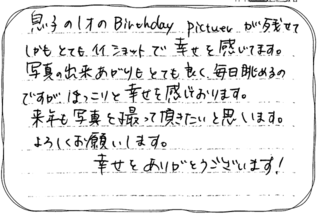 息子の1才のBirthday pictureが残せて
しかもとてもイイショットで幸せを感じてます。
写真の出来あがりもとても良く、毎日眺めるの
ですがほっこりと幸せを感じております。
来年も写真を撮って頂きたいと思います。
よろしくお願いします。
幸せをありがとうございます!